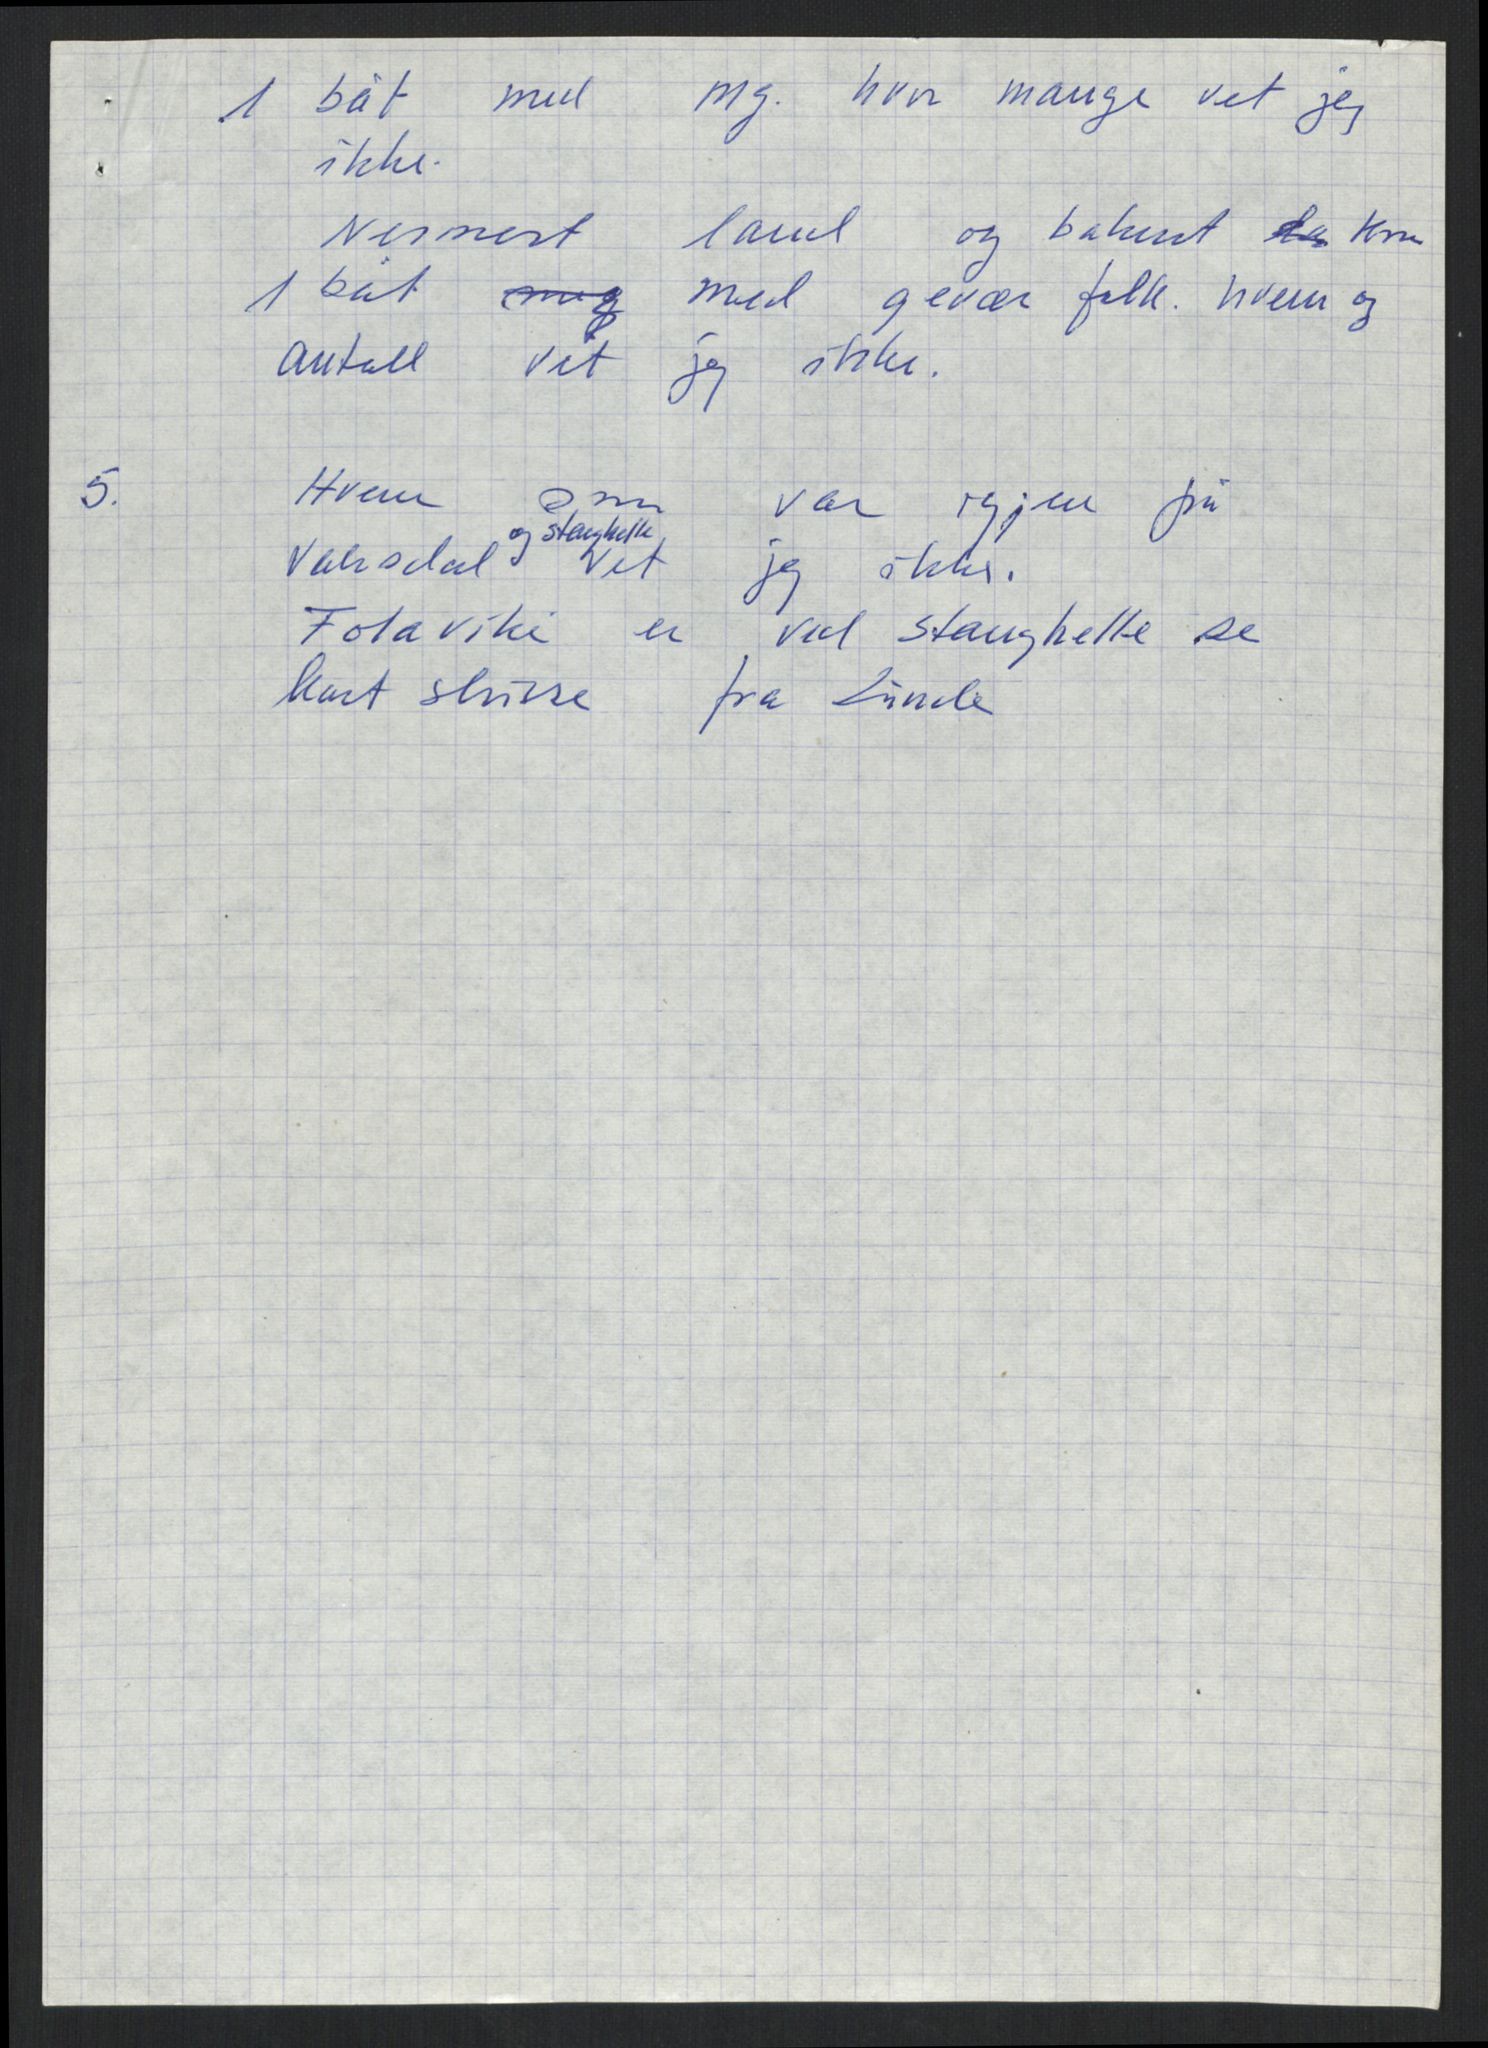 1 båt med mg. hvor mange vet jeg
ikke.
Nermest land og bakerst kom
1 båt med gevær folk. hvem og
antall vet jeg ikke.
5. Hvem som var igjen på
og Stanghelle
Vaksdal vet jeg ikke.
Fotaviki er ved Stanghelle se
kart skisse fra Lunde